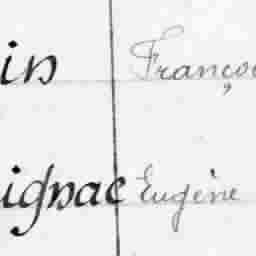 in Françoi
ignac Eugène